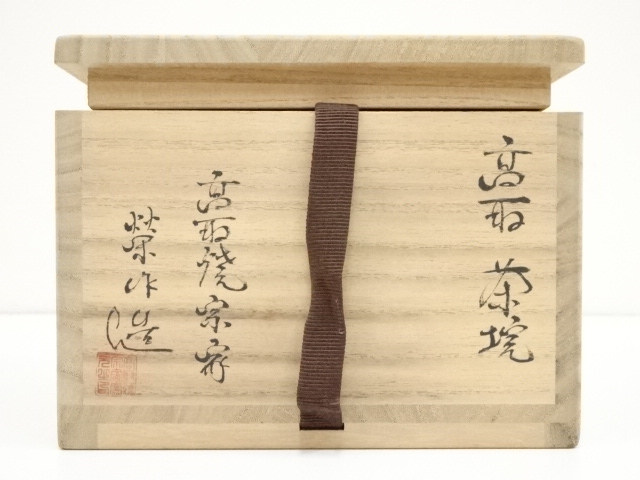 高取 茶埦
高取焼宗家
榮作造